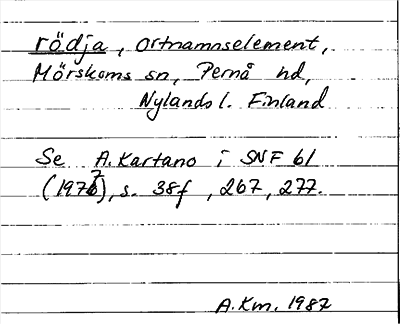 rödja, ortnamnselement,
Mörskoms sn, Pernå hd,
Nylands l. Finland
Se A. Kartano i SNF 61
(1977), s. 38f, 267, 277.
A.Km. 1987